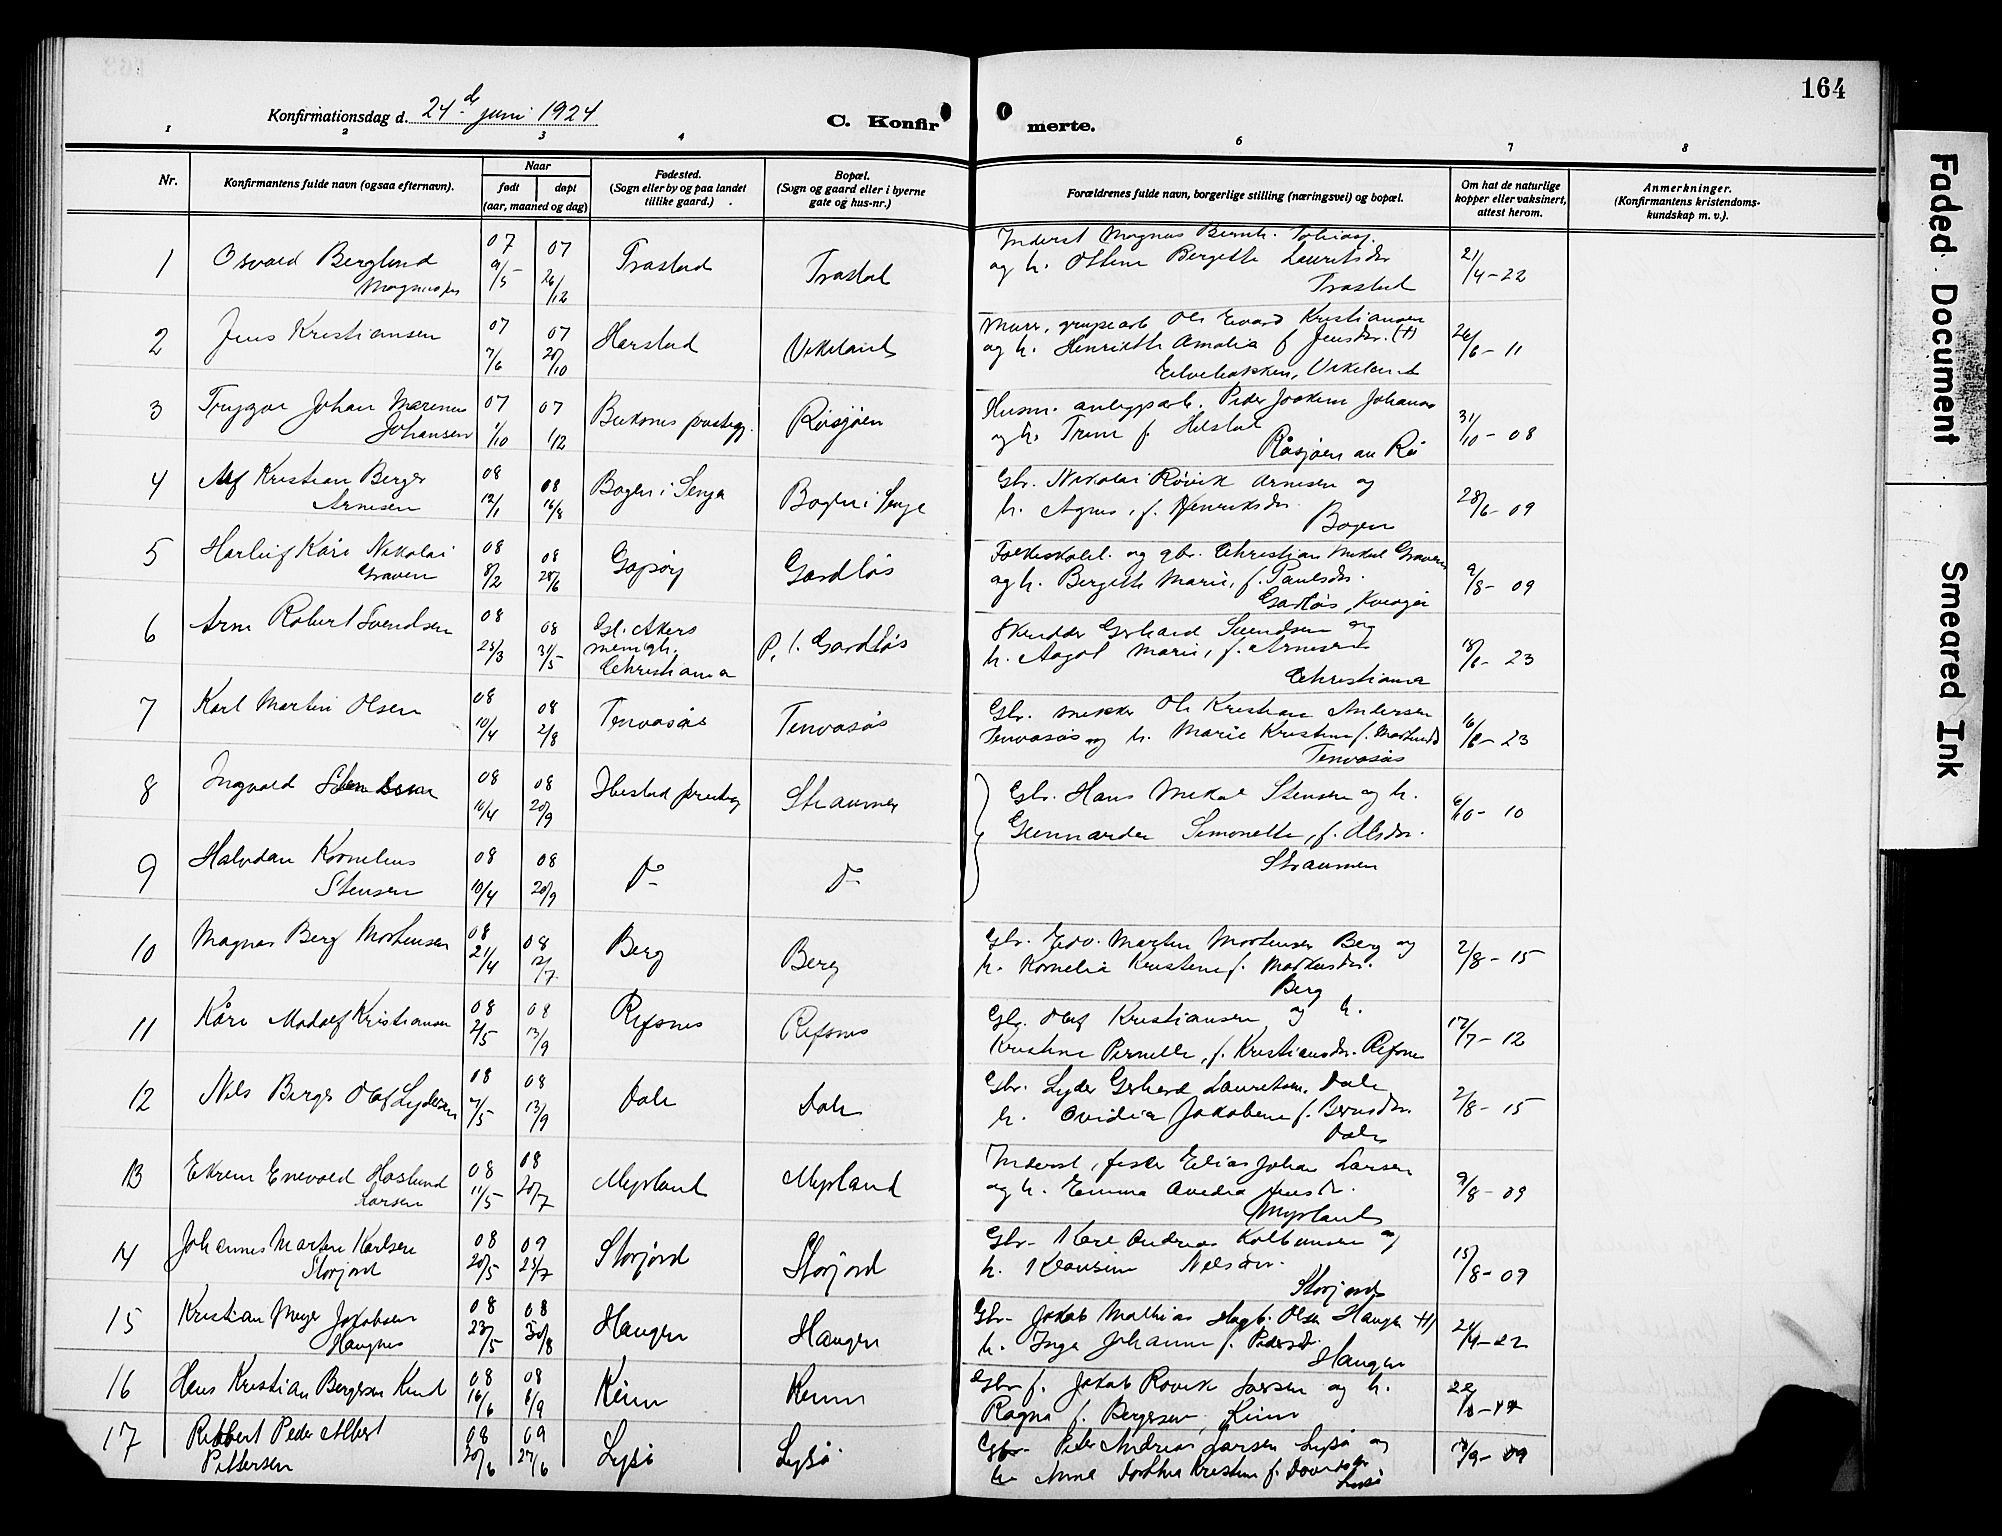 164
Konfirmationsdag d. 24de juni 1924
C. Konfirmerte.
1 2 3 4 6 7 8
Nr.
Konfirmantens fulde navn (ogsaa efternavn).
Naar
født
døpt
(aar, maaned og dag)
Fødested.
(Sogn eller by og paa landet
tillike gaard.)
Bopæl.
(Sogn og gaard eller i byerne
gate og hus-nr.)
Forældrenes fulde navn, borgerlige stilling (næringsvei) og bopæl.
Om hat de naturlige
kopper eller vaksinert,
attest herom.
Anmerkninger.
(Konfirmantens kristendoms-
kundskap m. v.).
1 Osvald Berglund 07 9/5 07 26/12 Trastad Trastad
Inderst Magnus Bernh. Tobias
og h. Ottine Bergitte Lauritsdr
Trastad
21/4 - 22
2 Jens Kristiansen 07 7/6 07 20/10 Harstad Vikeland
og h. Henriette Amalia f. Jensdr. (+)
Elvebakken, Vikeland
26/6 - 11
3 Trygve Johan Marenus
Johansen
07 1/10 07 1/12
Røisjøen
Husm. anleggsarb. Peder Joakim Johansen
31/10 - 08
4 Alf Kristian Berger
Arnesen
08 12/1 08 16/8 Bogen i Senja Bogen i Senja
Gbr. Nikolai Røivik Arnesen og
h. Agnes, f. Henriksdr.
Bogen
28/6 - 09
5 Harleif Kåre Nikolai
Graven
08 8/2 08 28/6 Gapøy Gardløs
Folkeskolel. og gbr. Christian Mikal Graven
og h. Bergitte Marie, f. Paulsdr.
9/8 - 09
6 Arne Robert Svendsen 08 25/3 08 31/5
Gl. Akers
menigh.
Christiania
P. t. Gardløs
Skrædder Gerhard Svendsen og
h. Aagot Marie, f. Arnesen
Christiania
18/6 - 23
7 Karl Martin Olsen 08 10/4 08 2/8 Tenvasøs Tenvasøs
Gbr. snekker Ole Kristian Andersen
Tenvasøs og h. Marie Kristine f.
Tenvasøs
16/6 - 23
8 Ingvald Stensen 08 10/4 08 20/9 Ibestad prestegj Straumen
Gbr. Hans Mikal Stensen og h.
Gunnarda Simonette, f. Olsdr.
Straumen
6/10 - 10
9 Halvdan Kornelius
Stensen
08 10/4 08 20/9 Do Do
10 Magnus Berg Mortensen 08 21/4 08 12/7 Berg Berg
Gbr. Edv. Martin Mortensen Berg og
h. Kornelia Kristine f. Mathisdr.
Berg
2/8 - 15
11 Kåre Modolf Kristiansen 08 2/5 08 13/9 Refsnes Refsnes
Gbr. Olaf Kristiansen og h.
Kristine Pernelle, f. Kristiansdr. Refsnes
17/7 - 12
12 Nils Berger Olaf Lydersen 08 7/5 08 13/9 Dale Dale
Gbr. Lyder Gerhard Lauritsen, Dale
h. Ovidia Jakobine f. Berntsdr.
Dale
2/8 - 15
13 Ekrem Enevald Haslund
Larsen
08 11/5 08 20/7 Myrland Myrland
Inderst, fisker Elias Johan Larsen
og h. Emma Ovedia Jensdr.
Myrland
9/8 - 09
14 Johannes Martin Karlsen
Storjord
08 20/5 09 25/7 Storjord Storjord
Gbr. Karl Andreas Kolbensen og
h. Klausine Nilsdr.
Storjord
15/8 - 09
15 Kristian Meyer Jakobsen
Haugnes
08 23/5 08 30/8 Haugen Haugen
Gbr. Jakob Mathias Hagb. Olsen Haugen (+)
h. Inga Johanne f. Pedersdr.
Haugen
16 Hans Kristian Bergersen 08 16/6 08 6/9 Keiun Keiun
Gbr f. Jakob Røvik Larsen og h.
Ragna f. Bergersen, Keiun
17 Robert Peder Albert
Pettersen
08 20/6 09 27/6 Lysø Lysø
Gbr. Peter Andreas Larsen Lysø og
h. Anna Dorthea Kristine f. Davidsdr
Lysø
18/9 - 09
Faded Document
Smeared Ink